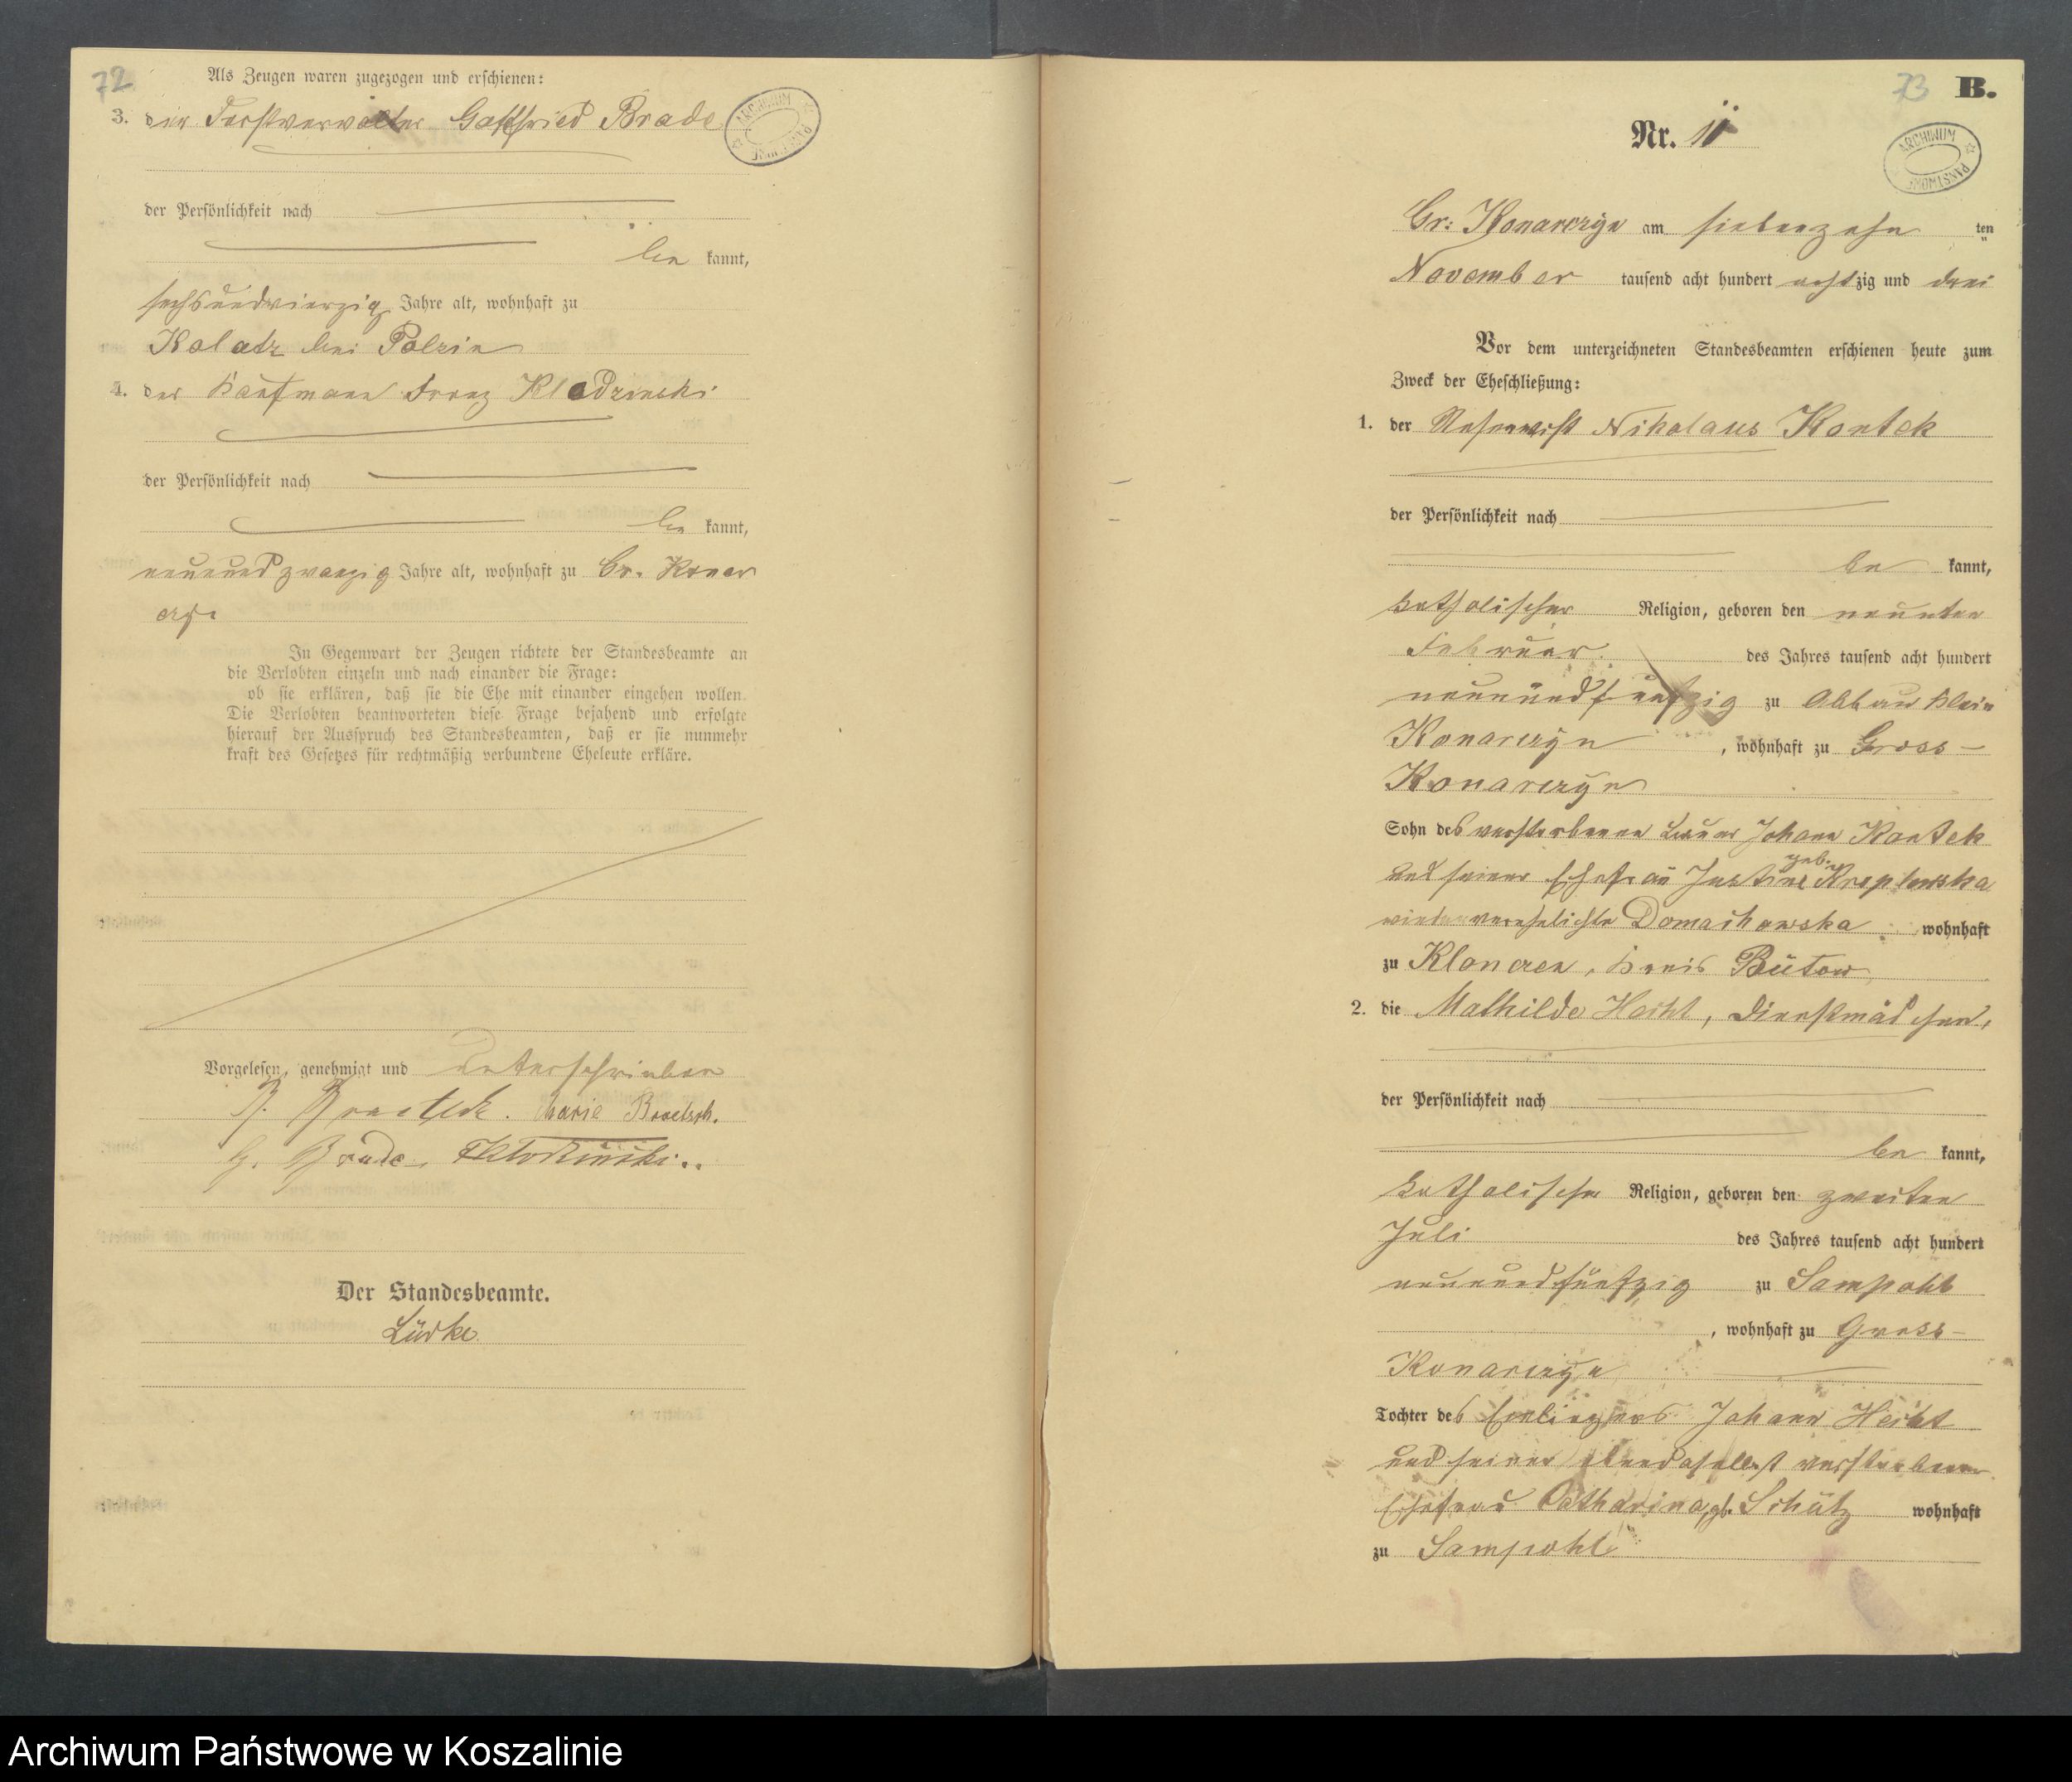 72
Als Zeugen waren zugezogen und erschienen:
3. der Forstverwalter Gottfried Brade
ARCHIWUM PAŃSTWOWE
der Persönlichkeit nach
be kannt,
sechsundvierzig Jahre alt, wohnhaft zu
Kolatz bei Polzin
4. der Kaufmann Franz Klodzinski
der Persönlichkeit nach
be kannt,
neunundzwanzig Jahre alt, wohnhaft zu Gr. Konar
czyn
In Gegenwart der Zeugen richtete der Standesbeamte an
die Verlobten einzeln und nach einander die Frage:
ob sie erklären, daß sie die Ehe mit einander eingehen wollen.
Die Verlobten beantworteten diese Frage bejahend und erfolgte
hierauf der Ausspruch des Standesbeamten, daß er sie nunmehr
kraft des Gesetzes für rechtmäßig verbundene Eheleute erkläre.
Vorgelesen, genehmigt und unterschrieben
Marie
G. Brade
Der Standesbeamte.
Lüdke
73 B.
Nr. 11
ARCHIWUM PAŃSTWOWE
Gr: Konarczyn am siebenzehn ten
November tausend acht hundert achtzig und drei
Vor dem unterzeichneten Standesbeamten erschienen heute zum
Zweck der Eheschließung:
1. der Reservist Nikolaus Kontek
der Persönlichkeit nach
be kannt,
katholischer Religion, geboren den neunten
Februar des Jahres tausend acht hundert
neunundfünfzig zu Abbau Klein
Konarczyn, wohnhaft zu Gross-
Konarczyn
Sohn des verstorbenen Johann Kontek
und seiner Ehefrau Justine geb.
wiederverehelichte Domachowska wohnhaft
zu Kloncen, Kreis Bütow
2. die Mathilde Hecht, Dienstmädchen,
der Persönlichkeit nach
be kannt,
katholischer Religion, geboren den zweiten
Juli des Jahres tausend acht hundert
neunundfünfzig zu Sampohl
, wohnhaft zu Gross-
Konarczyn
Tochter des Einliegers Johann Hecht
und seiner ebendaselbst verstorbenen
Ehefrau Catharina, gb. Schütz wohnhaft
zu Sampohl
Archiwum Państwowe w Koszalinie